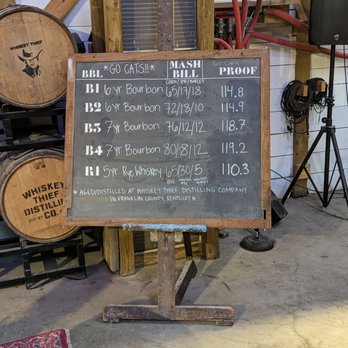 WHISKEY THIEF
BBL *GO CATS!!* MASH BILL PROOF
CORN/RYE/BARLEY
B1 6yr Bourbon 65/17/18 114.8
B2 6yr Bourbon 72/18/10 114.9
B3 7yr Bourbon 76/12/12 118.7
B4 7yr Bourbon 80/8/12 119.2
R1 5yr Rye Whiskey 65/30/5 110.3
*AGED/DISTILLED AT WHISKEY THIEF DISTILLING COMPANY
IN FRANKLIN COUNTY, KENTUCKY*
WHISKEY
THIEF
DISTILLING
CO.